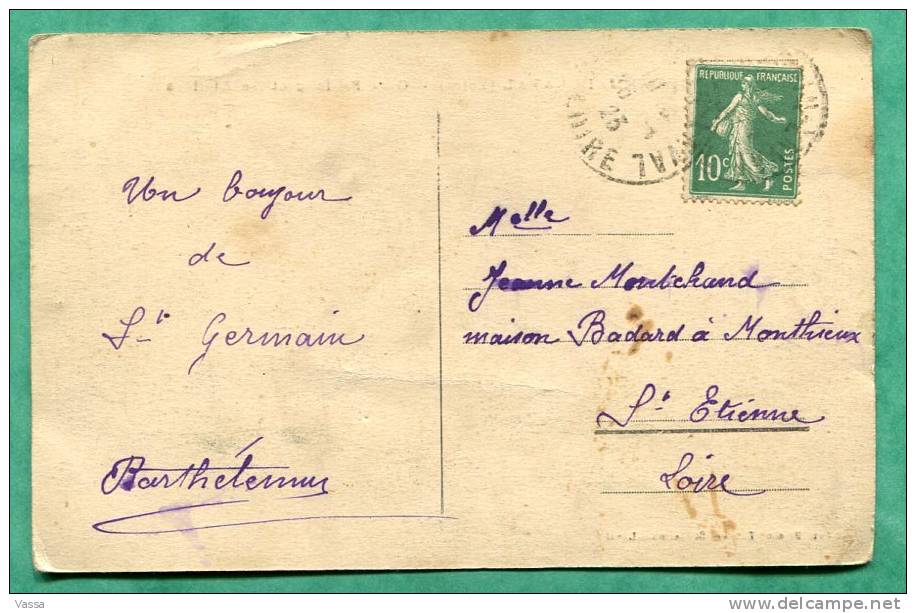 Un bonjour
de
St Germain
Barthélemy
REPUBLIQUE FRANÇAISE
10c
POSTES
23
LOIRE
Melle
Jeanne Montchand
maison Badard à Monthieux
St Etienne
Loire
Vassa
www.delcampe.net